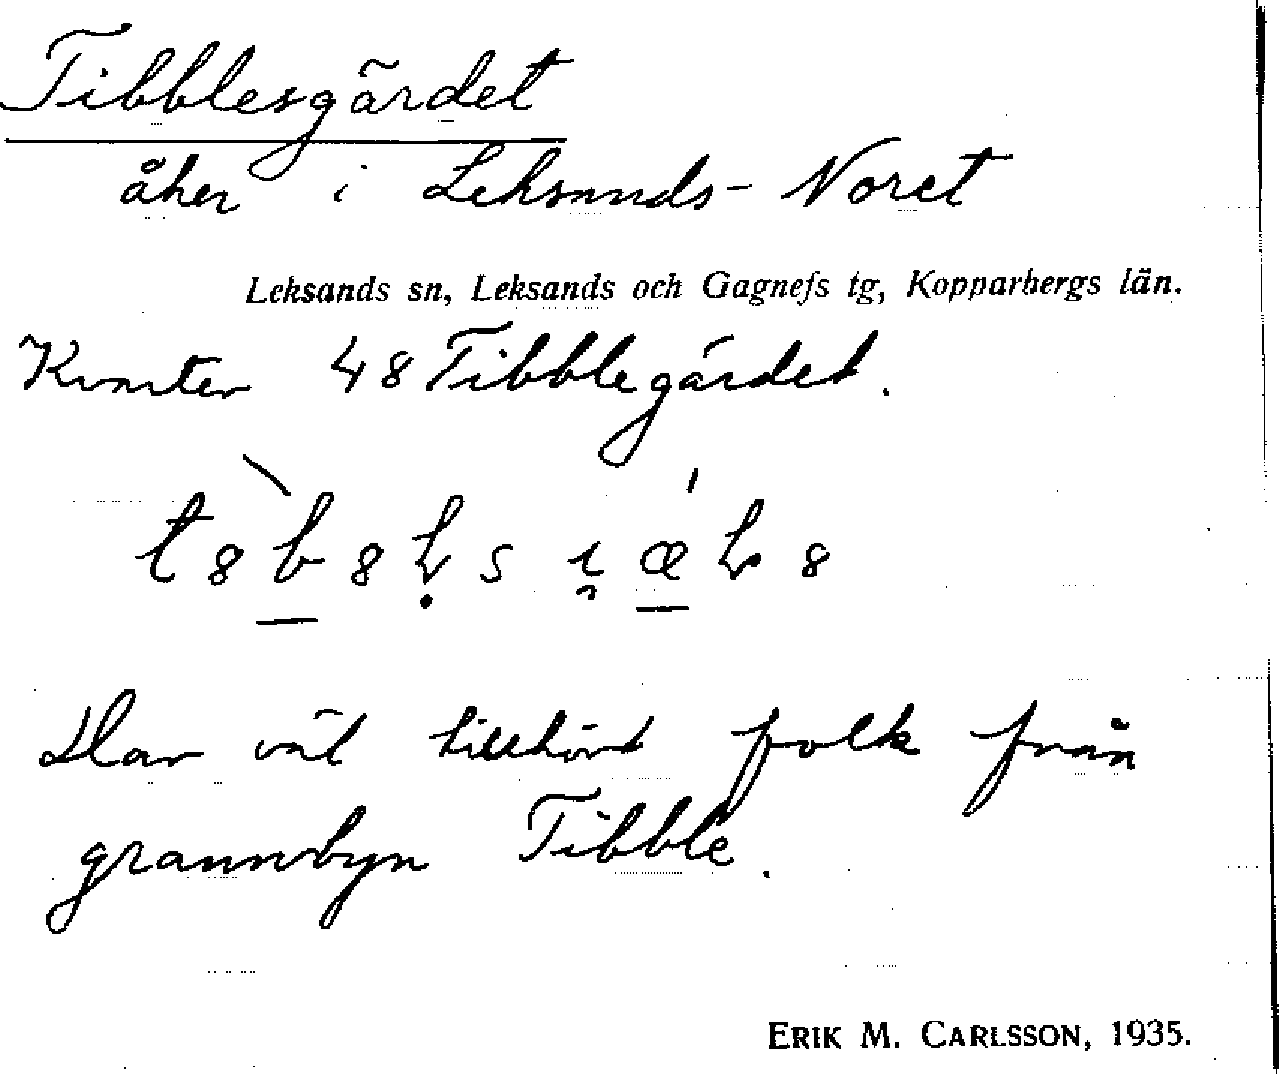 Tibblesgärdet
åker i Leksands-Noret
Leksands sn, Leksands och Gagnefs tg, Kopparbergs län.
48 Tibblegärdet.
Har väl tillhört folk från
grannbyn Tibble.
ERIK M. CARLSSON, 1935.